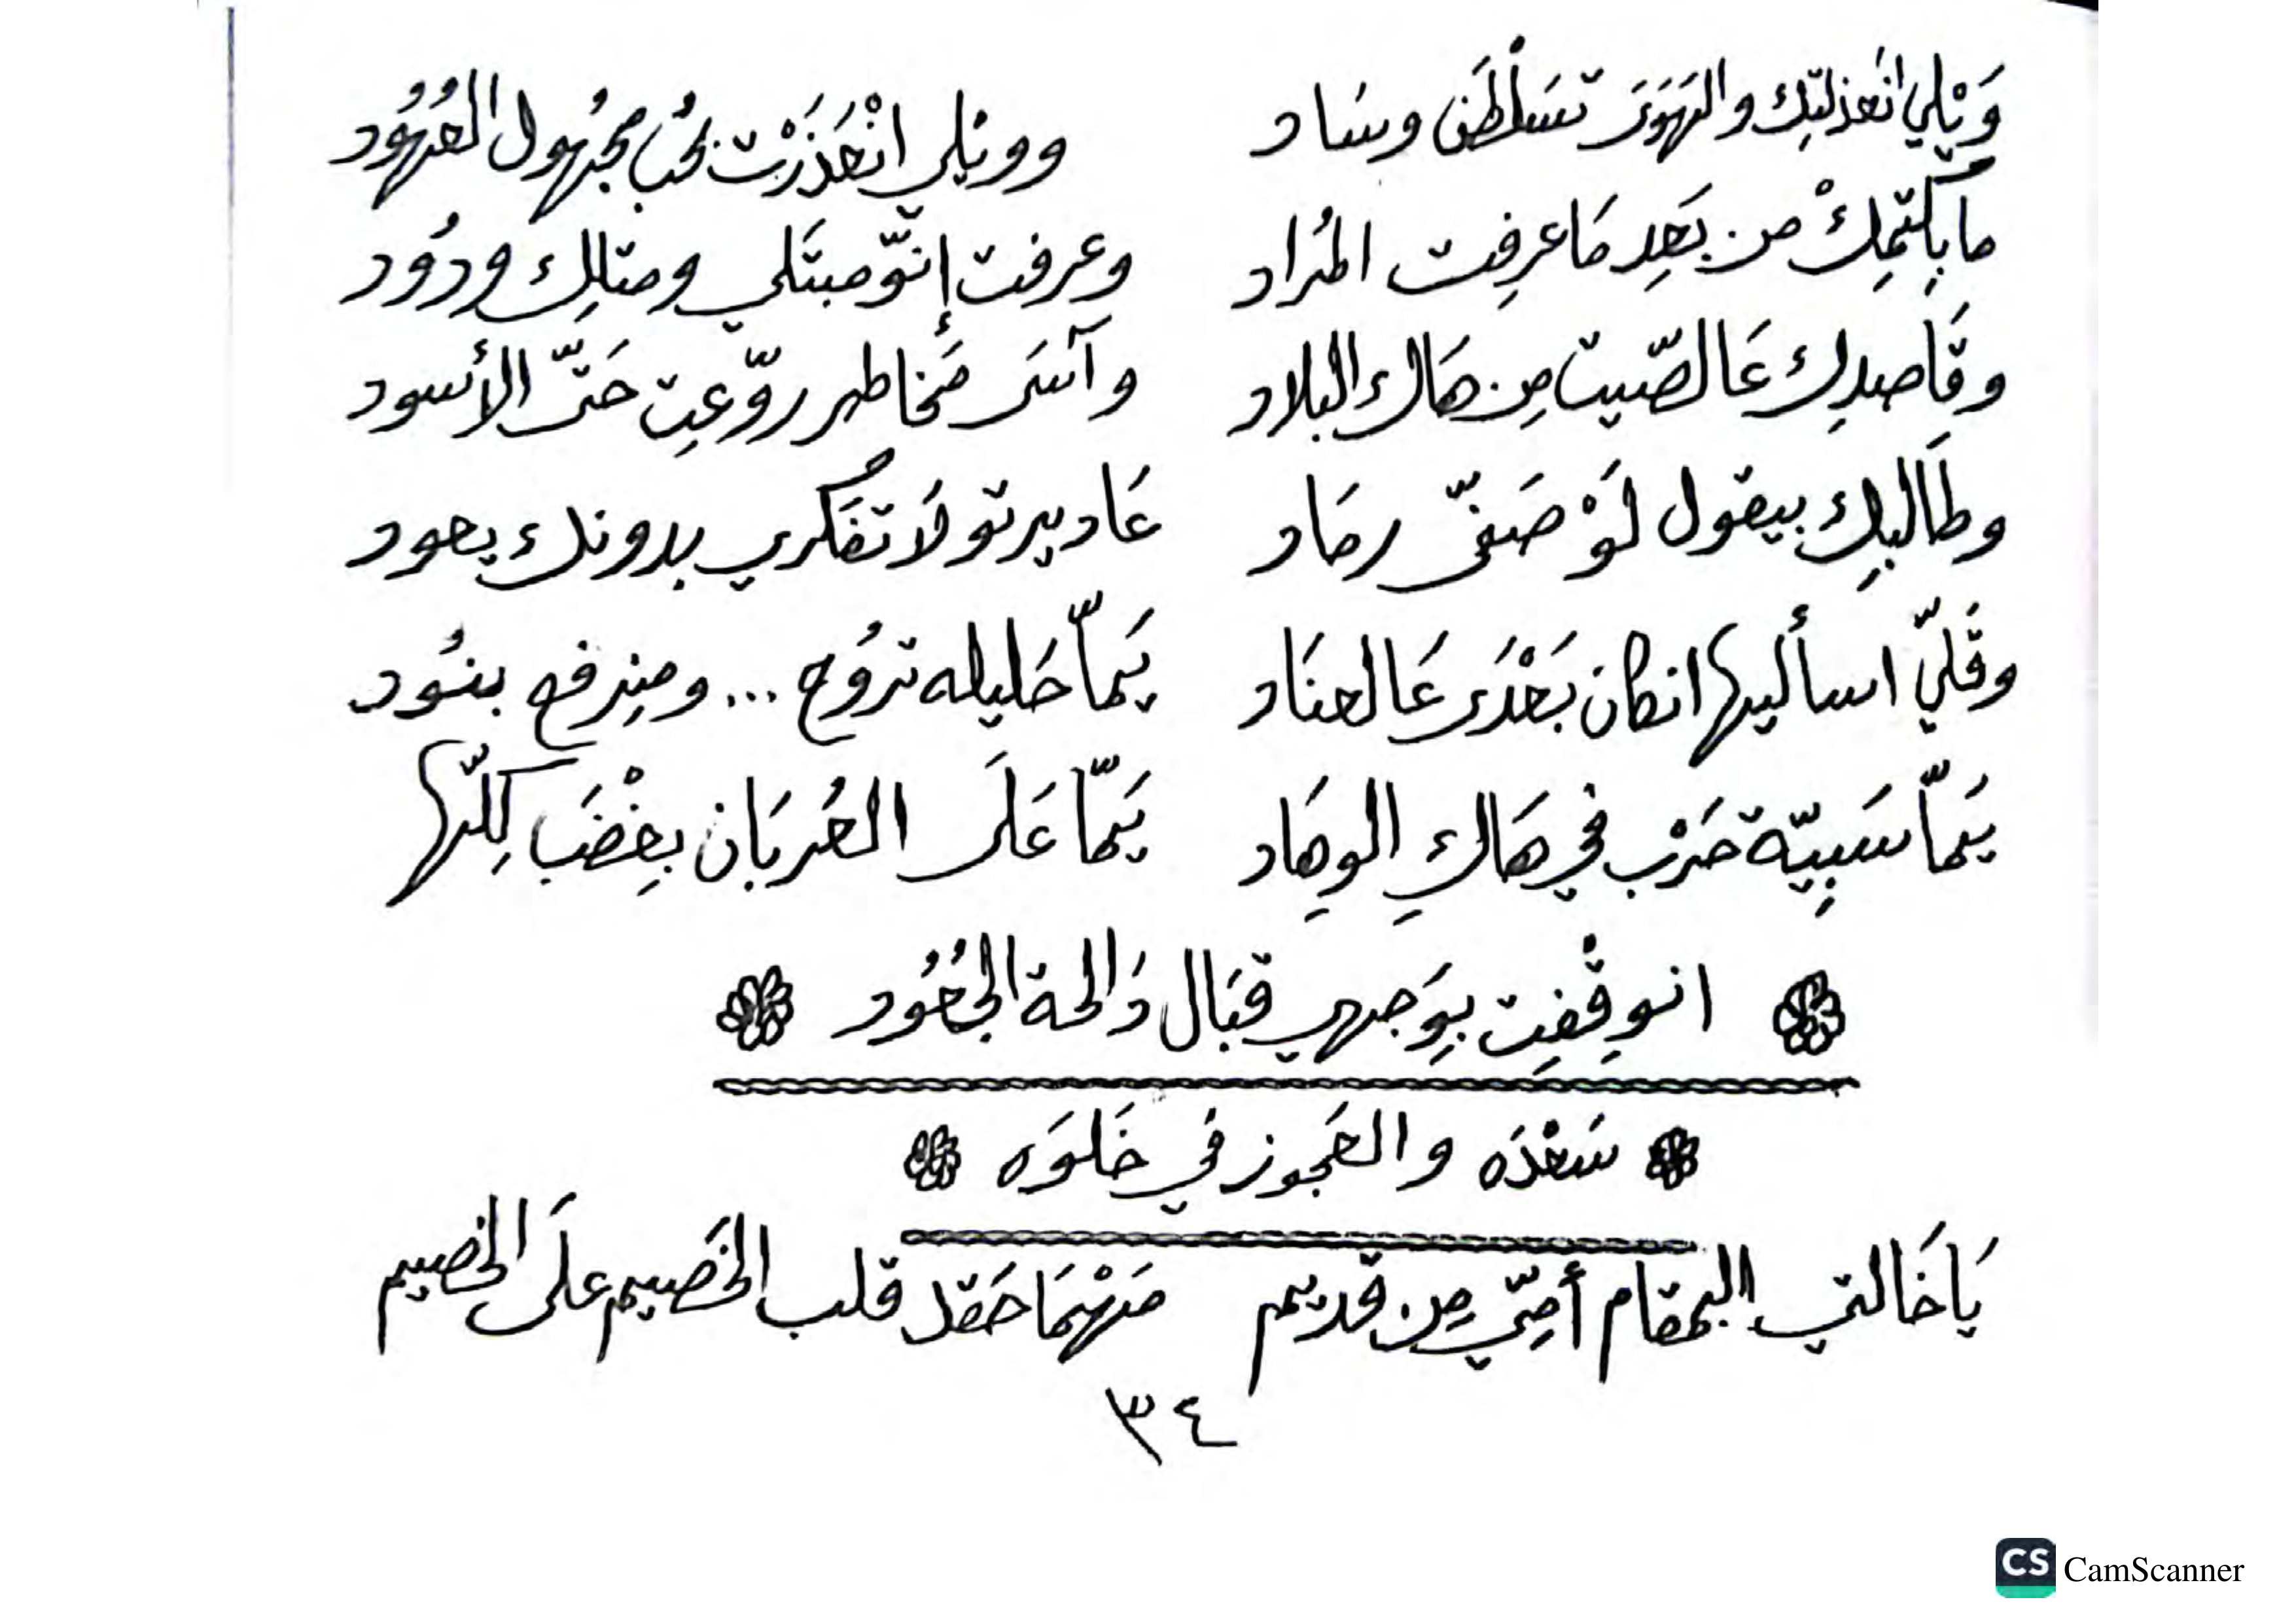 وَيْلي انعذلتِك والهَوَى تسَلْطَن وسَاد ووَيْلي انْعَذَرْت بحُب مجهُول العُهُود
ما بِكتمِكْ من بَعِد مَا عرِفت المُراد وعرفت إنّو مبتَلي ومتالِك ودُود
وقَاصدِك عَالصّيت مِن هَاك البلاد وآسَى مَخاطر روّعِت حَتّى الأسود
وطَالبِك بيقول لَوْ صَفّى رماد عَاد يبرتو لَا تفَكُري بدونك يعود
وقَلّي اسأليها انكان بَعْدَى عَالعنَاد يَمّا حَليله تروُح ... ومنِرفع بنُود
يَمّا سَبِيّة حَرْب في هَاكِ الوهَاد يَمّا عَلَى العُربَان بِغْضَب كِلّها
انوقْفِت بِوَجهي قبَال دَالحة الجُعُود
سَعْدَه والعَجوز في خَلوَه
يَاخَالتي البمقام أمّي مِن قديم مَهْمَا حَقد قلب الخَصيم علَى الخصيم
٣٤
CS CamScanner